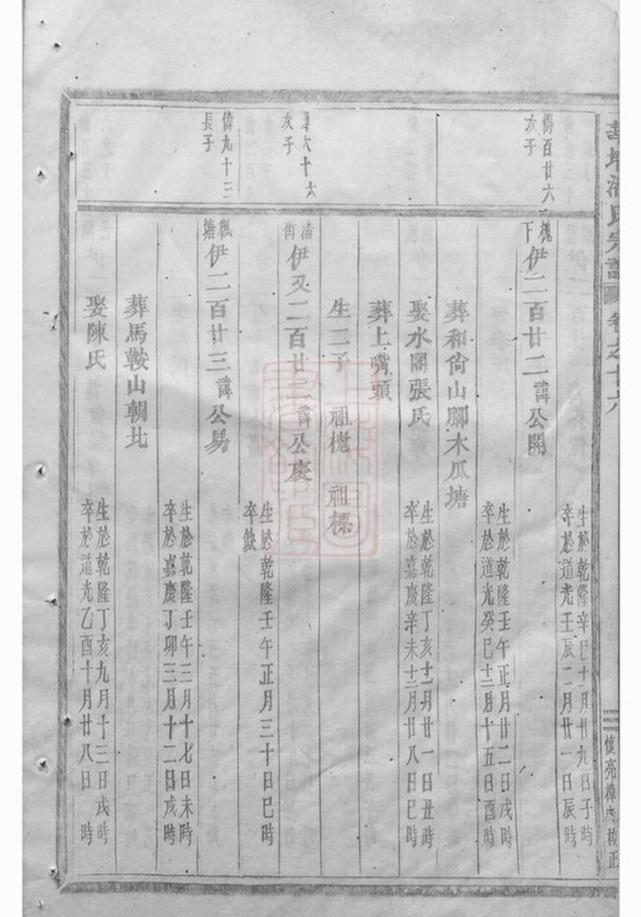 氏宗譜 卷之十六
傳百廿六
次子
槐下
伊二百廿二諱公開
生於乾隆辛巳十一月廿九日子時
卒於道光壬辰二月廿一日辰時
葬和尚山脚木瓜塘
娶水閣張氏
生於乾隆壬午正月廿二日戌時
卒於道光癸巳十二月十五日酉時
葬上嘴頭
生於乾隆丁亥十一月廿一日丑時
卒於嘉慶辛未十二月廿八日巳時
生二子 祖槐 祖標
六十六
次子
街
伊又二百廿二諱公慶
生於乾隆壬午正月三十日巳時
卒缺
傳九十三
長子
楓塘
伊二百廿三諱公易
生於乾隆壬午三月十七日未時
卒於嘉慶丁卯三月十二日戌時
葬馬鞍山朝北
娶陳氏
生於乾隆丁亥九月十三日戌時
卒於道光乙酉十月廿八日 時